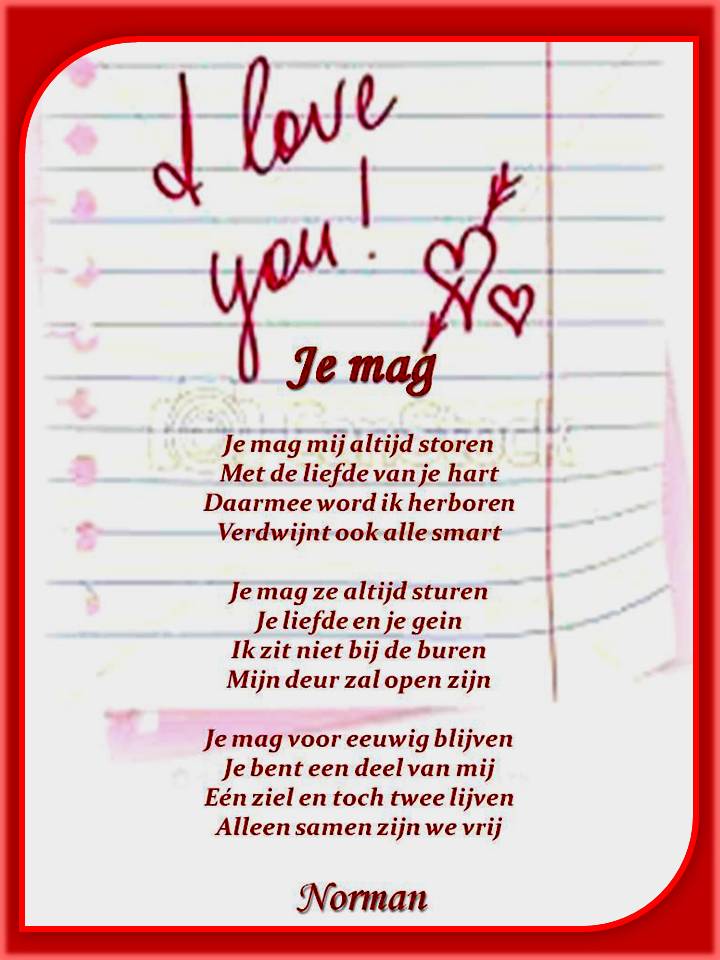 I love
you!
Je mag
Je mag mij altijd storen
Met de liefde van je hart
Daarmee word ik herboren
Verdwijnt ook alle smart
Je mag ze altijd sturen
Je liefde en je gein
Ik zit niet bij de buren
Mijn deur zal open zijn
Je mag voor eeuwig blijven
Je bent een deel van mij
Eén ziel en toch twee lijven
Alleen samen zijn we vrij
Norman